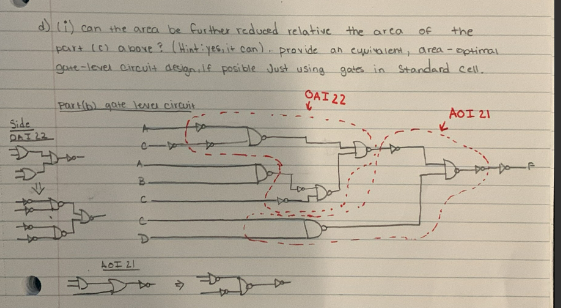 d) (i) can the area be further reduced relative the area of the
part (c) above? (Hint: yes, it can). provide an equivalent, area-optimal
gate-level circuit design, If posible Just using gates in Standard Cell.
Part(b) gate level circuit
OAI 22
AOI 21
Side
OAI 22
A
C
A
B
C
C
D
F
AOI 21